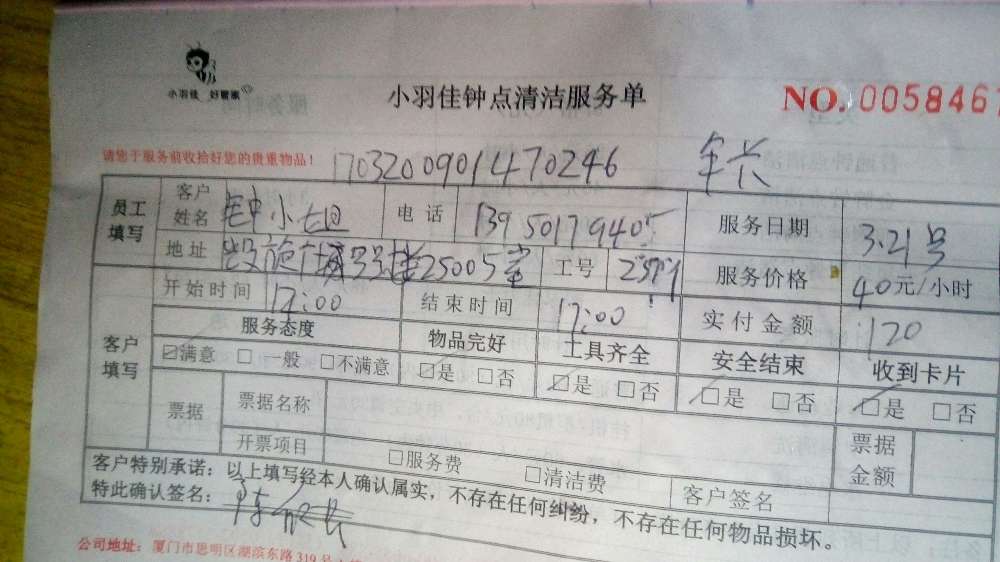 小羽佳 好管家
小羽佳钟点清洁服务单
NO. 0058467
请您于服务前收拾好您的贵重物品! 1703200901470246 年长
员工填写 客户姓名 钟小姐 电话 13950179405 服务日期 3.21号
地址 25005室 工号 服务价格 40元/小时
客户填写 开始时间 17:00 结束时间 17:00 实付金额 120
服务态度 物品完好 工具齐全 安全结束 收到卡片
☑满意 □一般 □不满意 ☑是 □否 ☑是 □否 ☑是 □否 ☑是 □否
票据 票据名称 票据金额
开票项目 □服务费 □清洁费 客户签名
客户特别承诺：以上填写经本人确认属实，不存在任何纠纷，不存在任何物品损坏。
特此确认签名：
公司地址：厦门市思明区湖滨东路319号